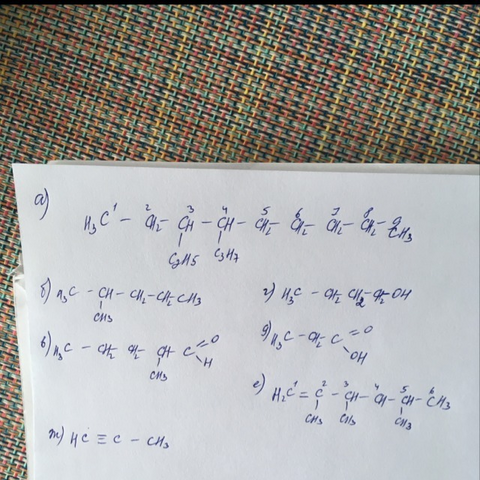 а)
H₃C¹ – ²CH₂ – ³CH – ⁴CH – ⁵CH₂ – ⁶CH₂ – ⁷CH₂ – ⁸CH₂ – ⁹CH₃
C₂H5 C₃H₇
б) H₃C – CH – CH₂ – CH₂ CH3
CH₃
г) H₃C – CH₂ CH₂ – CH₂ – OH
в) H₃C – CH₂ CH₂ – CH – C = O
H
CH₃
д) H₃C – CH₂ C = O
OH
е) H₂C¹ = ²C – ³CH – ⁴CH – ⁵CH – ⁶CH₃
CH₃ CH₃ CH₃
ж) HC ≡ C – CH₃